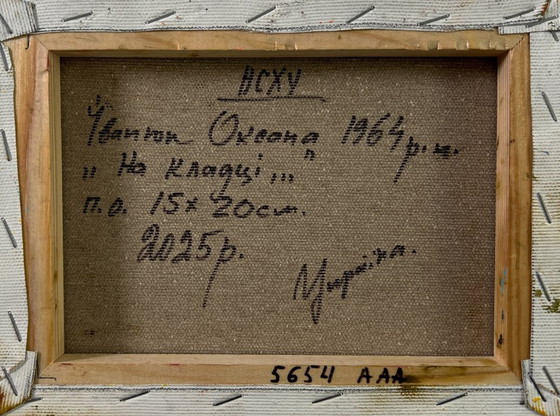 НСХУ
Оксана 1964 р.н.
„На кладці..."
п.о. 15х20см.
2025р.
Україна.
5654 ААА